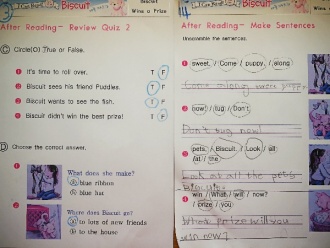 Biscuit
Wins a Prize
After Reading - Review Quiz 2
C Circle(O) True or False.
1 It's time to roll over. T F
2 Biscuit sees his friend Puddles. T F
3 Biscuit wants to see the fish. T F
4 Biscuit didn't win the best prize! T F
D Choose the correct answer.
1 What does she make?
a blue ribbon
b blue hat
2 Where does Biscuit go?
a to lots of new friends
b to the house
Biscuit
After Reading - Make Sentences
Unscramble the sentences.
1 sweet, / Come / puppy. / along
Come along sweet puppy
2 now! / tug / Don't
Don't tug now!
3 pets, / Biscuit. / Look / all
/at / the
Look at all the pets
Biscuit.
4 win / What / will / now?
/ prize / you
What Prize will you
win now?